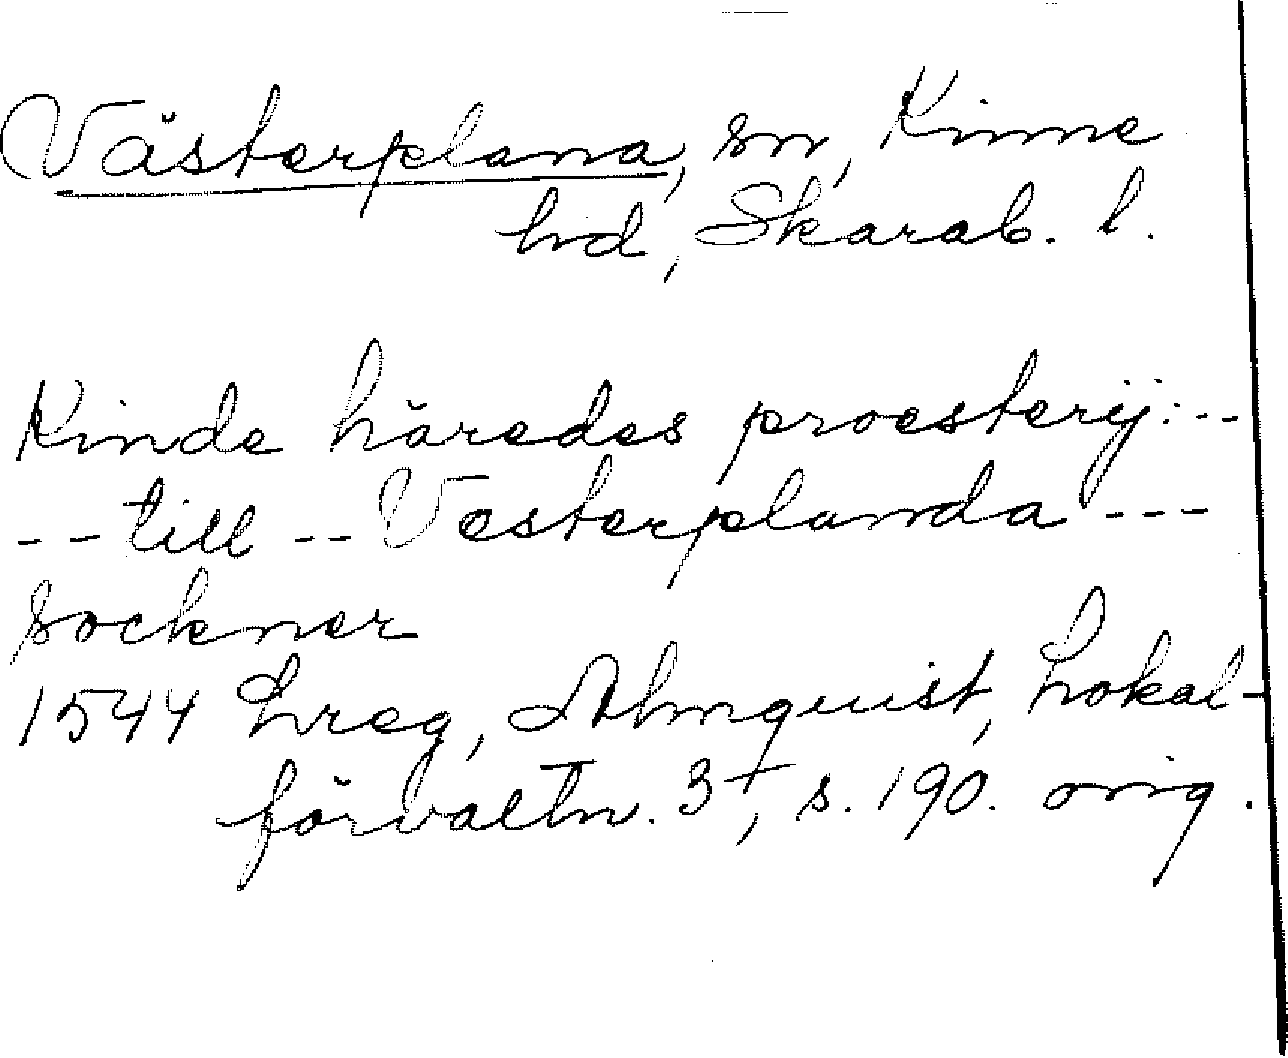 Västerplana, sn, Kinne
hd, Skarab. l.
Kinde häredes proesterij: --
-- till -- Vesterplanda ---
sockner
1544 Lreg, Almquist, Lokal-
förvaltn. 3⁺, s. 190. orig.